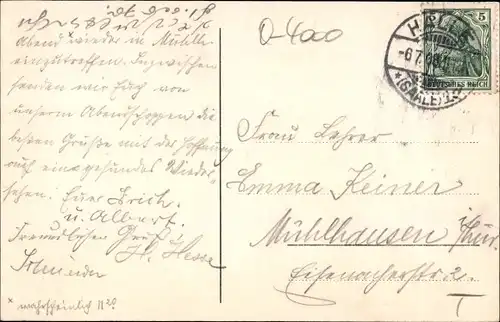 Abend wieder in Mühlh.
einzutreffen. Inzwischen
senden wir Euch von
unserm Abendschoppen die
besten Grüße mit der Hoffnung
auf ein gesundes Wieder-
sehen. Eure Erich
u. Albert.
Freundlichen Gruß
H. Hesse
* wahrscheinlich 11 20
0-400
HALLE
-6.7.
*(SAALE)
5
DEUTSCHES REICH
Frau Lehrer
Emma Keiner
Mühlhausen i/Thür.
Eisenacherstr. 2.
T